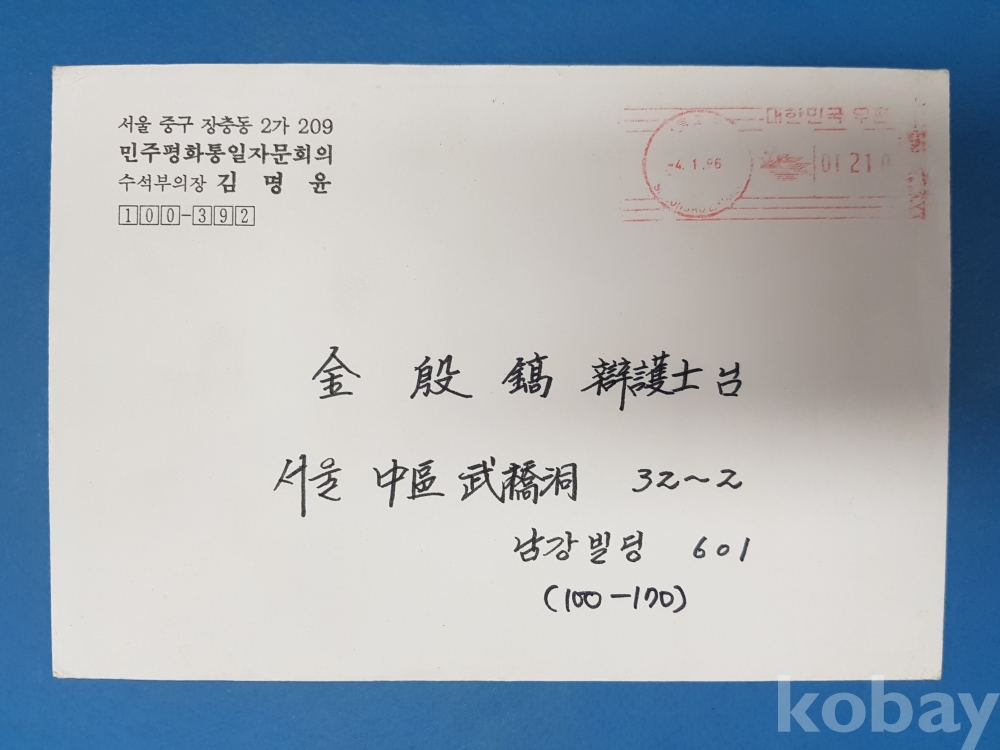 서울 중구 장충동 2가 209
민주평화통일자문회의
수석부의장 김 명 윤
100-392
대한민국
-4. 1. 96
0210
金 殷 鎬 辯護士 님
서울 中區 武橋洞 32~2
남강빌딩 601
(100-170)
kobay